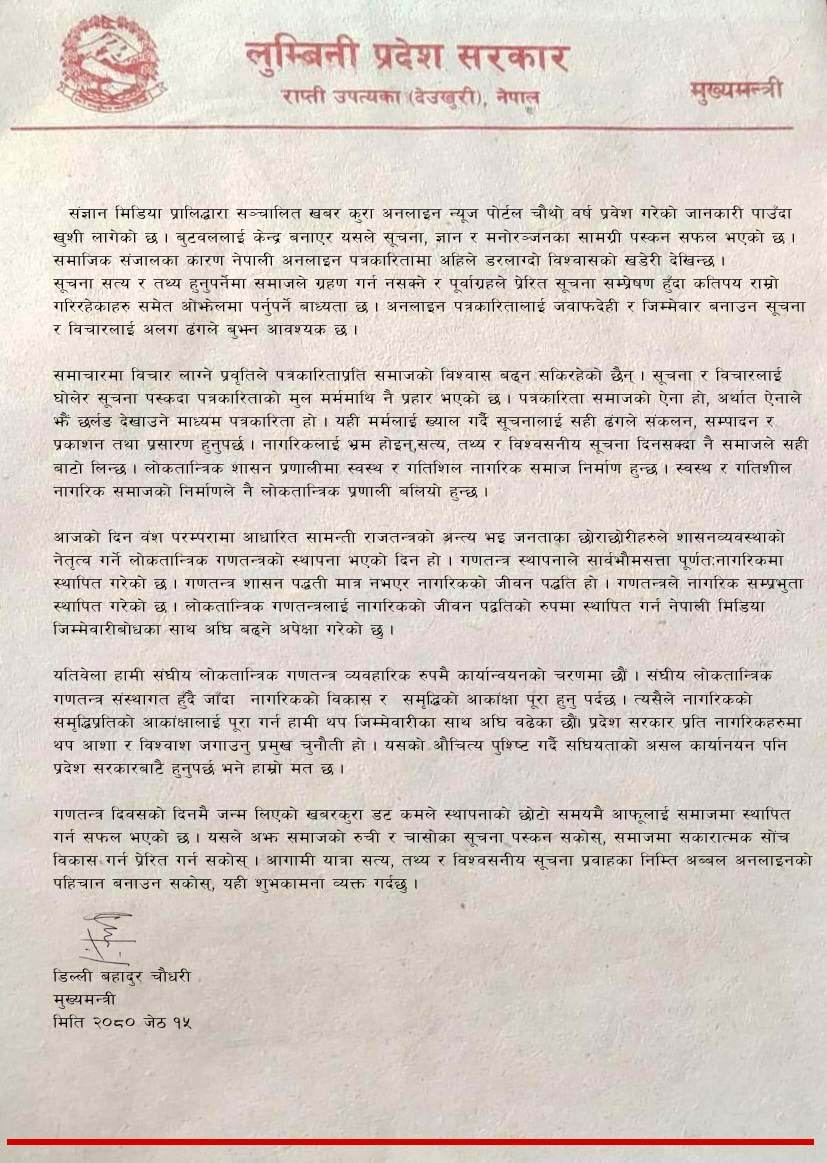 लुम्बिनी प्रदेश सरकार
राप्ती उपत्यका (देउखुरी), नेपाल
मुख्यमन्त्री
संज्ञान मिडिया प्रालिद्वारा सञ्चालित खबर कुरा अनलाइन न्यूज पोर्टल चौथो वर्ष प्रवेश गरेको जानकारी पाउँदा
खुशी लागेको छ । बुटवललाई केन्द्र बनाएर यसले सूचना, ज्ञान र मनोरञ्जनका सामग्री पस्कन सफल भएको छ ।
समाजिक संजालका कारण नेपाली अनलाइन पत्रकारितामा अहिले डरलाग्दो विश्वासको खडेरी देखिन्छ ।
सूचना सत्य र तथ्य हुनुपर्नेमा समाजले ग्रहण गर्न नसक्ने र पूर्वाग्रहले प्रेरित सूचना सम्प्रेषण हुँदा कतिपय राम्रो
गरिरहेकाहरु समेत ओझेलमा पर्नुपर्ने बाध्यता छ । अनलाइन पत्रकारितालाई जवाफदेही र जिम्मेवार बनाउन सूचना
र विचारलाई अलग ढंगले बुझ्न आवश्यक छ ।
समाचारमा विचार लाग्ने प्रवृतिले पत्रकारिताप्रति समाजको विश्वास बढ्न सकिरहेको छैन् । सूचना र विचारलाई
घोलेर सूचना पस्कदा पत्रकारिताको मुल मर्ममाथि नै प्रहार भएको छ । पत्रकारिता समाजको ऐना हो, अर्थात ऐनाले
झैं छर्लङ देखाउने माध्यम पत्रकारिता हो । यही मर्मलाई ख्याल गर्दै सूचनालाई सही ढंगले संकलन, सम्पादन र
प्रकाशन तथा प्रसारण हुनुपर्छ । नागरिकलाई भ्रम होइन्,सत्य, तथ्य र विश्वसनीय सूचना दिनसक्दा नै समाजले सही
बाटो लिन्छ । लोकतान्त्रिक शासन प्रणालीमा स्वस्थ र गतिशिल नागरिक समाज निर्माण हुन्छ । स्वस्थ र गतिशील
नागरिक समाजको निर्माणले नै लोकतान्त्रिक प्रणाली बलियो हुन्छ ।
आजको दिन वंश परम्परामा आधारित सामन्ती राजतन्त्रको अन्त्य भइ जनताका छोराछोरीहरुले शासनव्यवस्थाको
नेतृत्व गर्ने लोकतान्त्रिक गणतन्त्रको स्थापना भएको दिन हो । गणतन्त्र स्थापनाले सार्वभौमसत्ता पूर्णत:नागरिकमा
स्थापित गरेको छ । गणतन्त्र शासन पद्धती मात्र नभएर नागरिकको जीवन पद्धति हो । गणतन्त्रले नागरिक सम्प्रभुता
स्थापित गरेको छ । लोकतान्त्रिक गणतन्त्रलाई नागरिकको जीवन पद्वतिको रुपमा स्थापित गर्न नेपाली मिडिया
जिम्मेवारीबोधका साथ अघि बढ्ने अपेक्षा गरेको छु ।
यतिवेला हामी संघीय लोकतान्त्रिक गणतन्त्र व्यवहारिक रुपमै कार्यान्वयनको चरणमा छौं । संघीय लोकतान्त्रिक
गणतन्त्र संस्थागत हुँदै जाँदा नागरिकको विकास र समृद्धिको आकांक्षा पूरा हुनु पर्दछ । त्यसैले नागरिकको
समृद्धिप्रतिको आकांक्षालाई पूरा गर्न हामी थप जिम्मेवारीका साथ अघि वढेका छौं। प्रदेश सरकार प्रति नागरिकहरुमा
थप आशा र विश्वाश जगाउनु प्रमुख चुनौती हो । यसको औचित्य पुश्ष्टि गर्दै सघियताको असल कार्यानयन पनि
प्रदेश सरकारबाटै हुनुपर्छ भने हाम्रो मत छ ।
गणतन्त्र दिवसको दिनमै जन्म लिएको खबरकुरा डट कमले स्थापनाको छोटो समयमै आफूलाई समाजमा स्थापित
गर्न सफल भएको छ । यसले अझ समाजको रुची र चासोका सूचना पस्कन सकोस्, समाजमा सकारात्मक सोंच
विकास गर्न प्रेरित गर्न सकोस् । आगामी यात्रा सत्य, तथ्य र विश्वसनीय सूचना प्रवाहका निम्ति अब्बल अनलाइनको
पहिचान बनाउन सकोस्, यही शुभकामना व्यक्त गर्दछु ।
डिल्ली बहादुर चौधरी
मुख्यमन्त्री
मिति २०८० जेठ १५